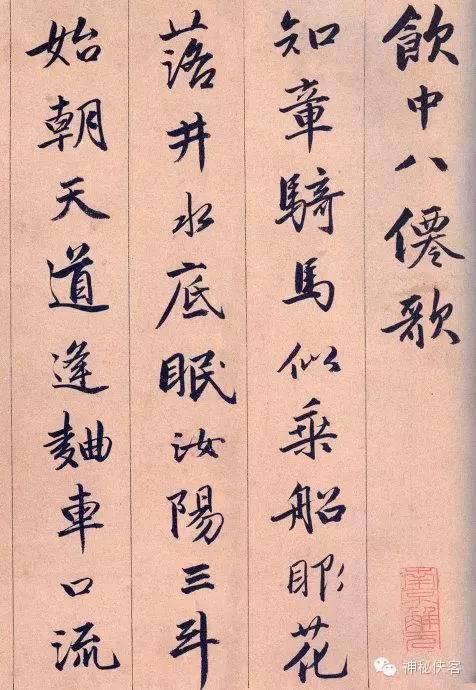 飲中八僊歌
知章騎馬似乘船眼花
落井水底眠汝陽三斗
始朝天道逢麯車口流
神秘侠客